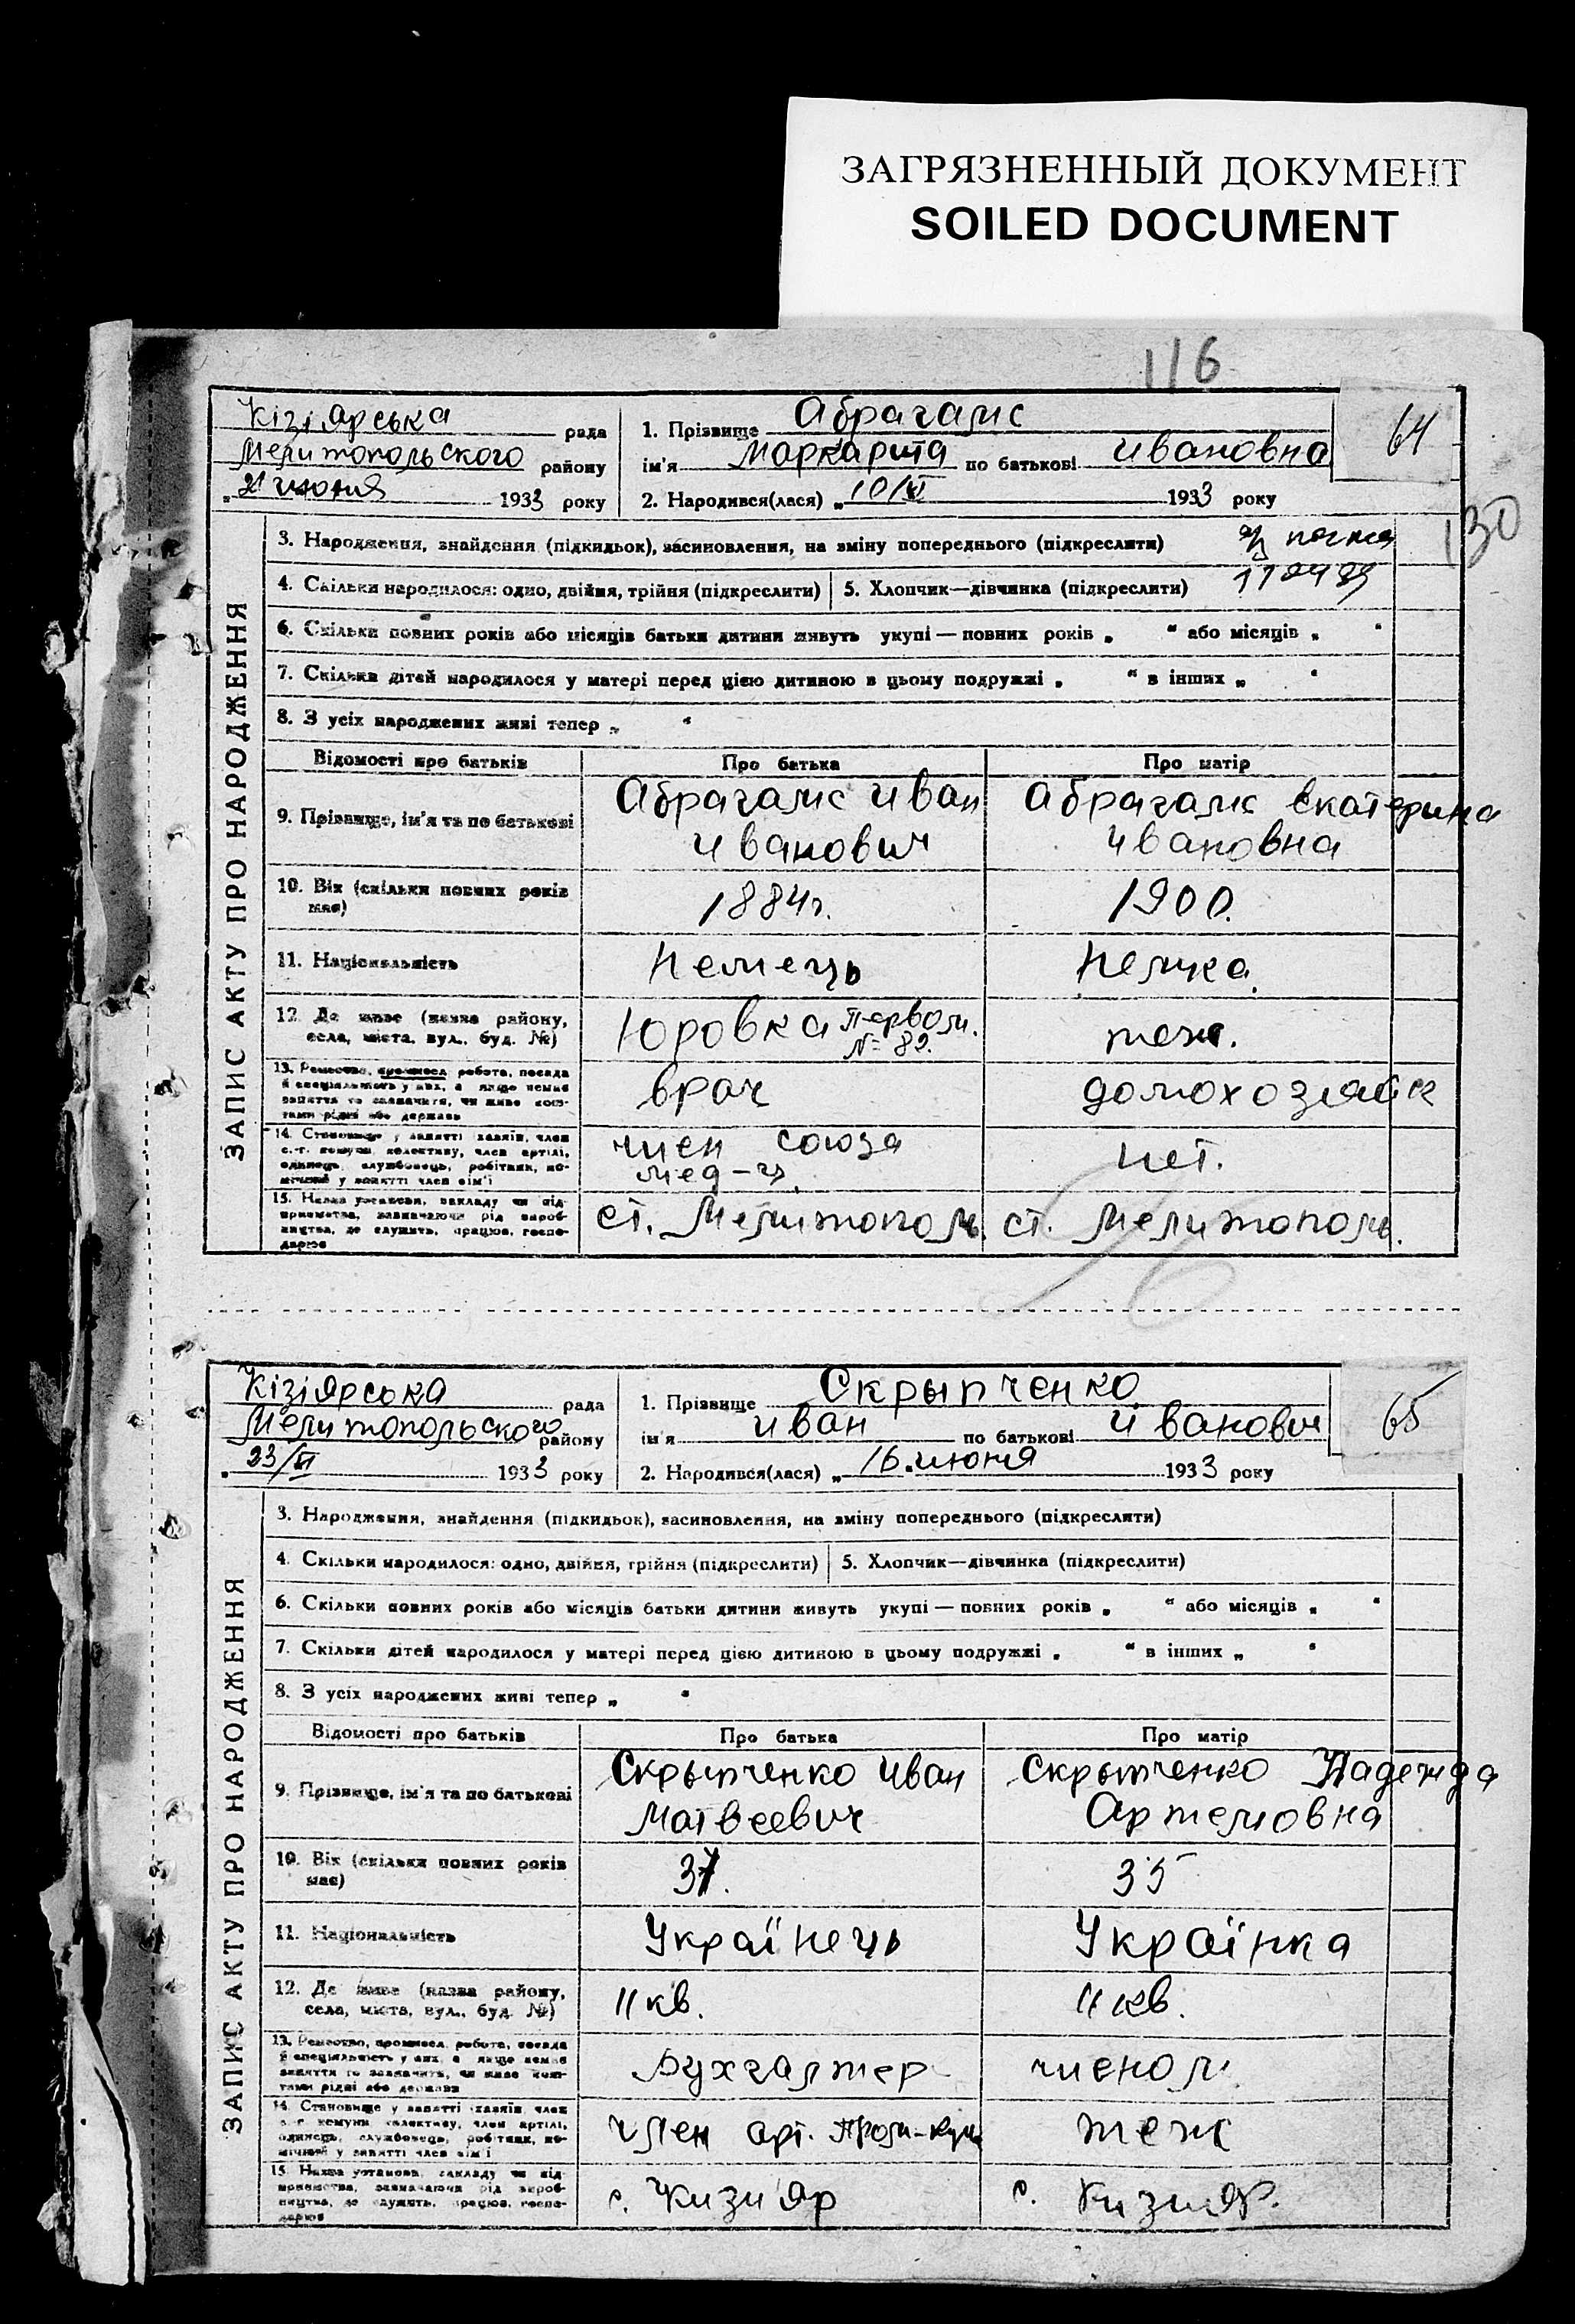 ЗАГРЯЗНЕННЫЙ ДОКУМЕНТ
SOILED DOCUMENT
116
64
130
Кізіярська рада
Мелитопольского району
"21 июня 1933 року
1. Прізвище Абрагамс
ім'я Маркарита по батькові Ивановна
2. Народився(лася) „10/VI 1933 року
ЗАПИС АКТУ ПРО НАРОДЖЕННЯ
3. Народження, знайдення (підкидьок), засиновлення, на зміну попереднього (підкреслити)
4. Скільки народилося: одно, двійня, трійня (підкреслити) 5. Хлопчик—дівчинка (підкреслити)
6. Скільки повних років або місяців батьки дитини живуть укупі — повних років „ “ або місяців „ “
7. Скільки дітей народилося у матері перед цією дитиною в цьому подружжі „ “ в інших „ “
8. З усіх народжених живі тепер „ “
Відомості про батьків Про батька Про матір
9. Прізвище, ім'я та по батькові
Абрагамс Иван
Иванович
Абрагамс Екатерина
Ивановна
10. Вік (скільки повних років має)
1884г.
1900.
11. Національність
Немець
Немка.
12. Де живе (назва району,
села, міста, вул., буд. №)
Юровка Первом.
№ 82.
теж.
13. Ремество, промисел, робота, посада
й спеціяльність у них, а якщо немає
заняття то зазначити, чи живе кош-
тами рідні або держави
врач
домохозяйк
14. Становище у занятті хазяїн, член
с.-г. комуни, колективу, член артілі,
одинець, службовець, робітник, по-
мічний у занятті член сім'ї
член союза
мед-
нет.
15. Назва установи, закладу чи під-
приємства, зазначаючи рід вироб-
ництва, де служить, працює, госпо-
дарює
ст. Мелитополь
ст. Мелитополь.
65
Кізіярська рада
Мелитопольского району
"23/VI 1933 року
1. Прізвище Скрыпченко
ім'я Иван по батькові Иванович
2. Народився(лася) „16.июня 1933 року
ЗАПИС АКТУ ПРО НАРОДЖЕННЯ
3. Народження, знайдення (підкидьок), засиновлення, на зміну попереднього (підкреслити)
4. Скільки народилося: одно, двійня, трійня (підкреслити) 5. Хлопчик—дівчинка (підкреслити)
6. Скільки повних років або місяців батьки дитини живуть укупі — повних років „ “ або місяців „ “
7. Скільки дітей народилося у матері перед цією дитиною в цьому подружжі „ “ в інших „ “
8. З усіх народжених живі тепер „ “
Відомості про батьків Про батька Про матір
9. Прізвище, ім'я та по батькові
Скрыпченко Иван
Матвеевич
Скрыпченко Надежда
Артемовна
10. Вік (скільки повних років
має)
37.
35
11. Національність
Українець
Українка
12. Де живе (назва району,
села, міста, вул., буд. №)
11 кв.
11 кв.
13. Ремество, промисел, робота, посада
й спеціяльність у них, а якщо немає
заняття то зазначити, чи живе кош-
тами рідні або держави
Бухгалтер
14. Становище у занятті хазяїн, член
с.-г. комуни, колективу, член артілі,
одинець, службовець, робітник, по-
мічний у занятті член сім'ї
член арт.
теж
15. Назва установи, закладу чи під-
приємства, зазначаючи рід вироб-
ництва, де служить, працює, госпо-
дарює
с. Кизияр
с. Кизияр.